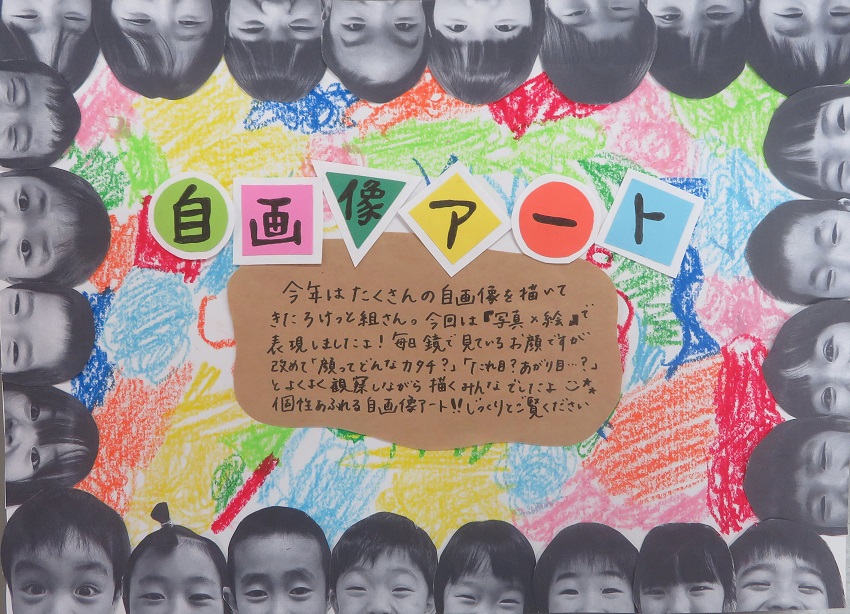 自画像アート
今年はたくさんの自画像を描いて
きたろけっと組さん。今回は『写真×絵』で
表現しましたよ！毎日鏡で見ているお顔ですが
改めて「顔ってどんなカタチ？」「たれ目？あがり目…？」
とよくよく観察しながら描くみんなでしたよ
個性あふれる自画像アート!!じっくりとご覧ください